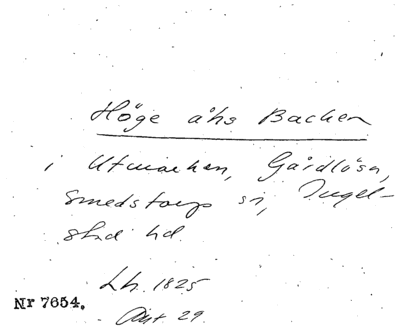 Höge åhs Backen
i Utmarken, Gårdlösa,
Smedstorps sn, Ingel-
stad hd.
Lh. 1825
Akt 29.
Nr 7654.